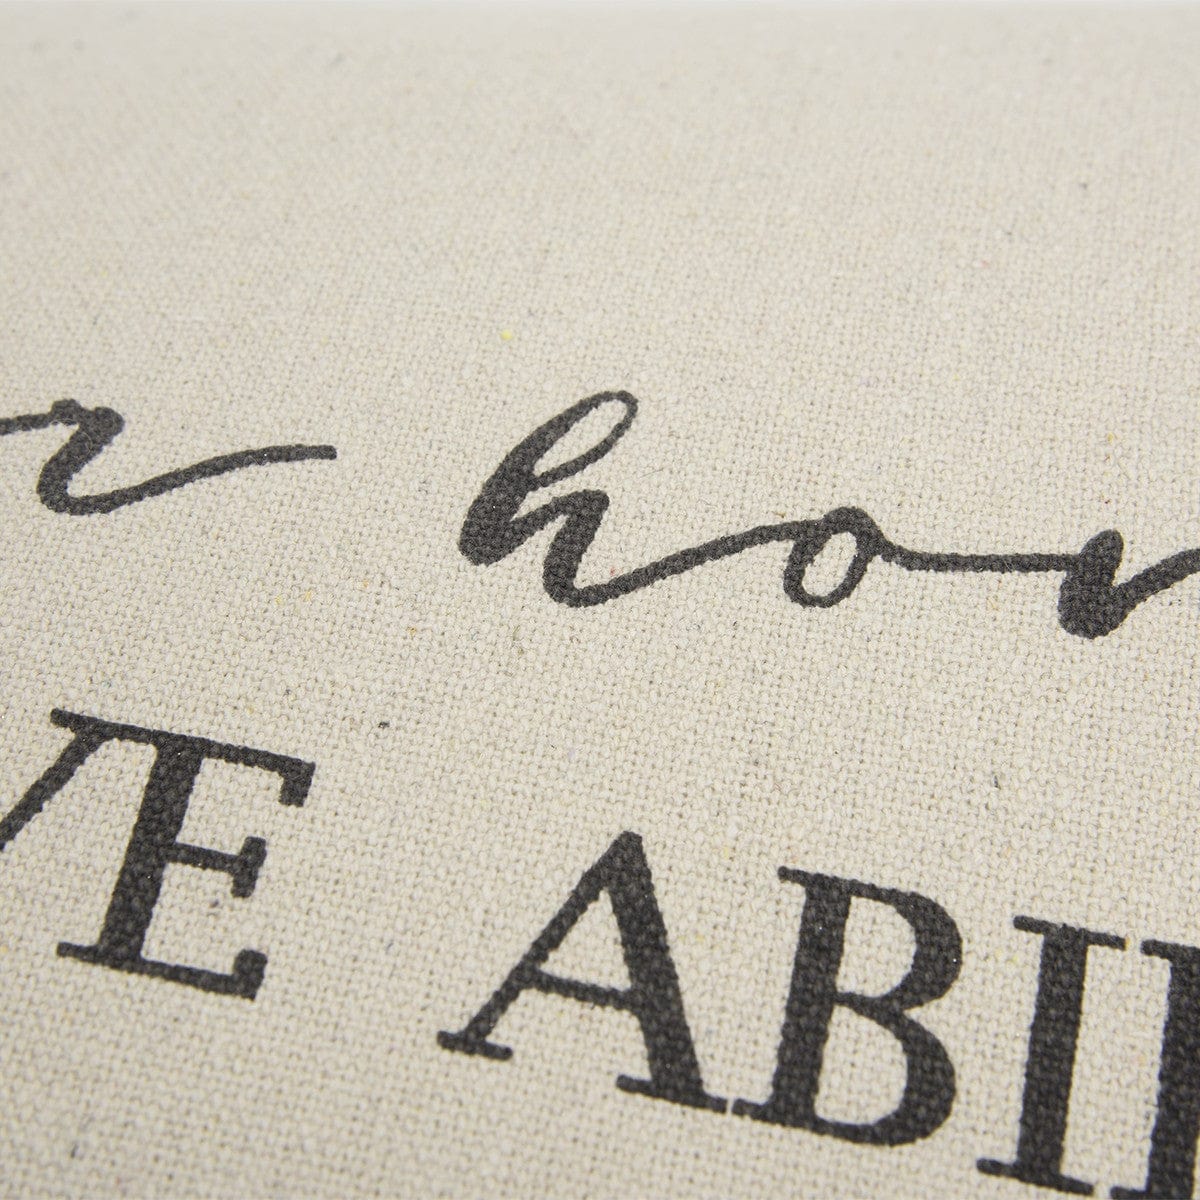 r ho
VE ABI